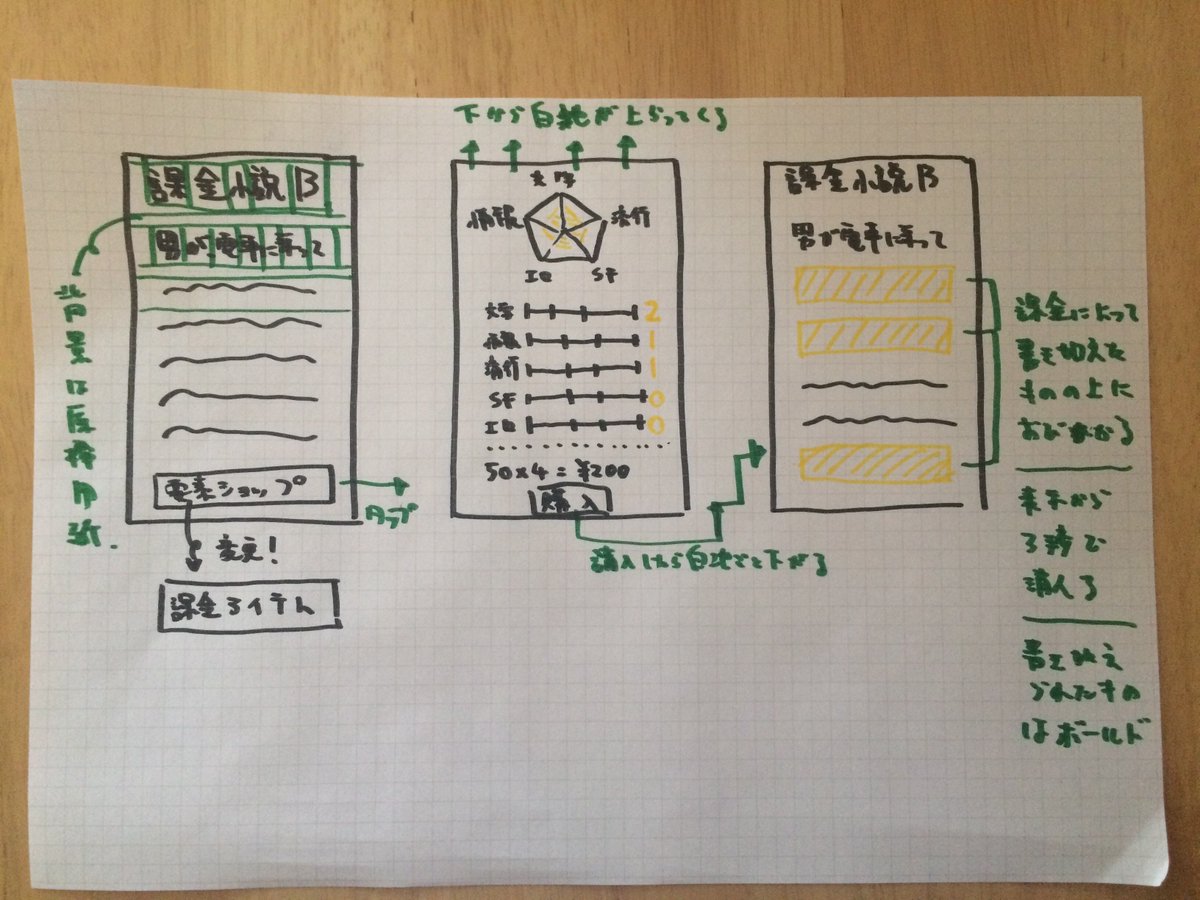 下から白紙が上がってくる
課金小説B
男が、電車に乗って
背景は原稿用紙.
電素ショップ
タップ
変更!
課金アイテム
文学
情報
流行
IQ
SF
文学 2
情報 1
流行 1
SF 0
IQ 0
50×4=¥200
購入
購入したら白地ごと下がる
課金小説B
男が電車に乗って
課金によって
書き加えた
ものの上に
おびかかる
表示から
3秒で
消える
書き加え
られたもの
はボールド